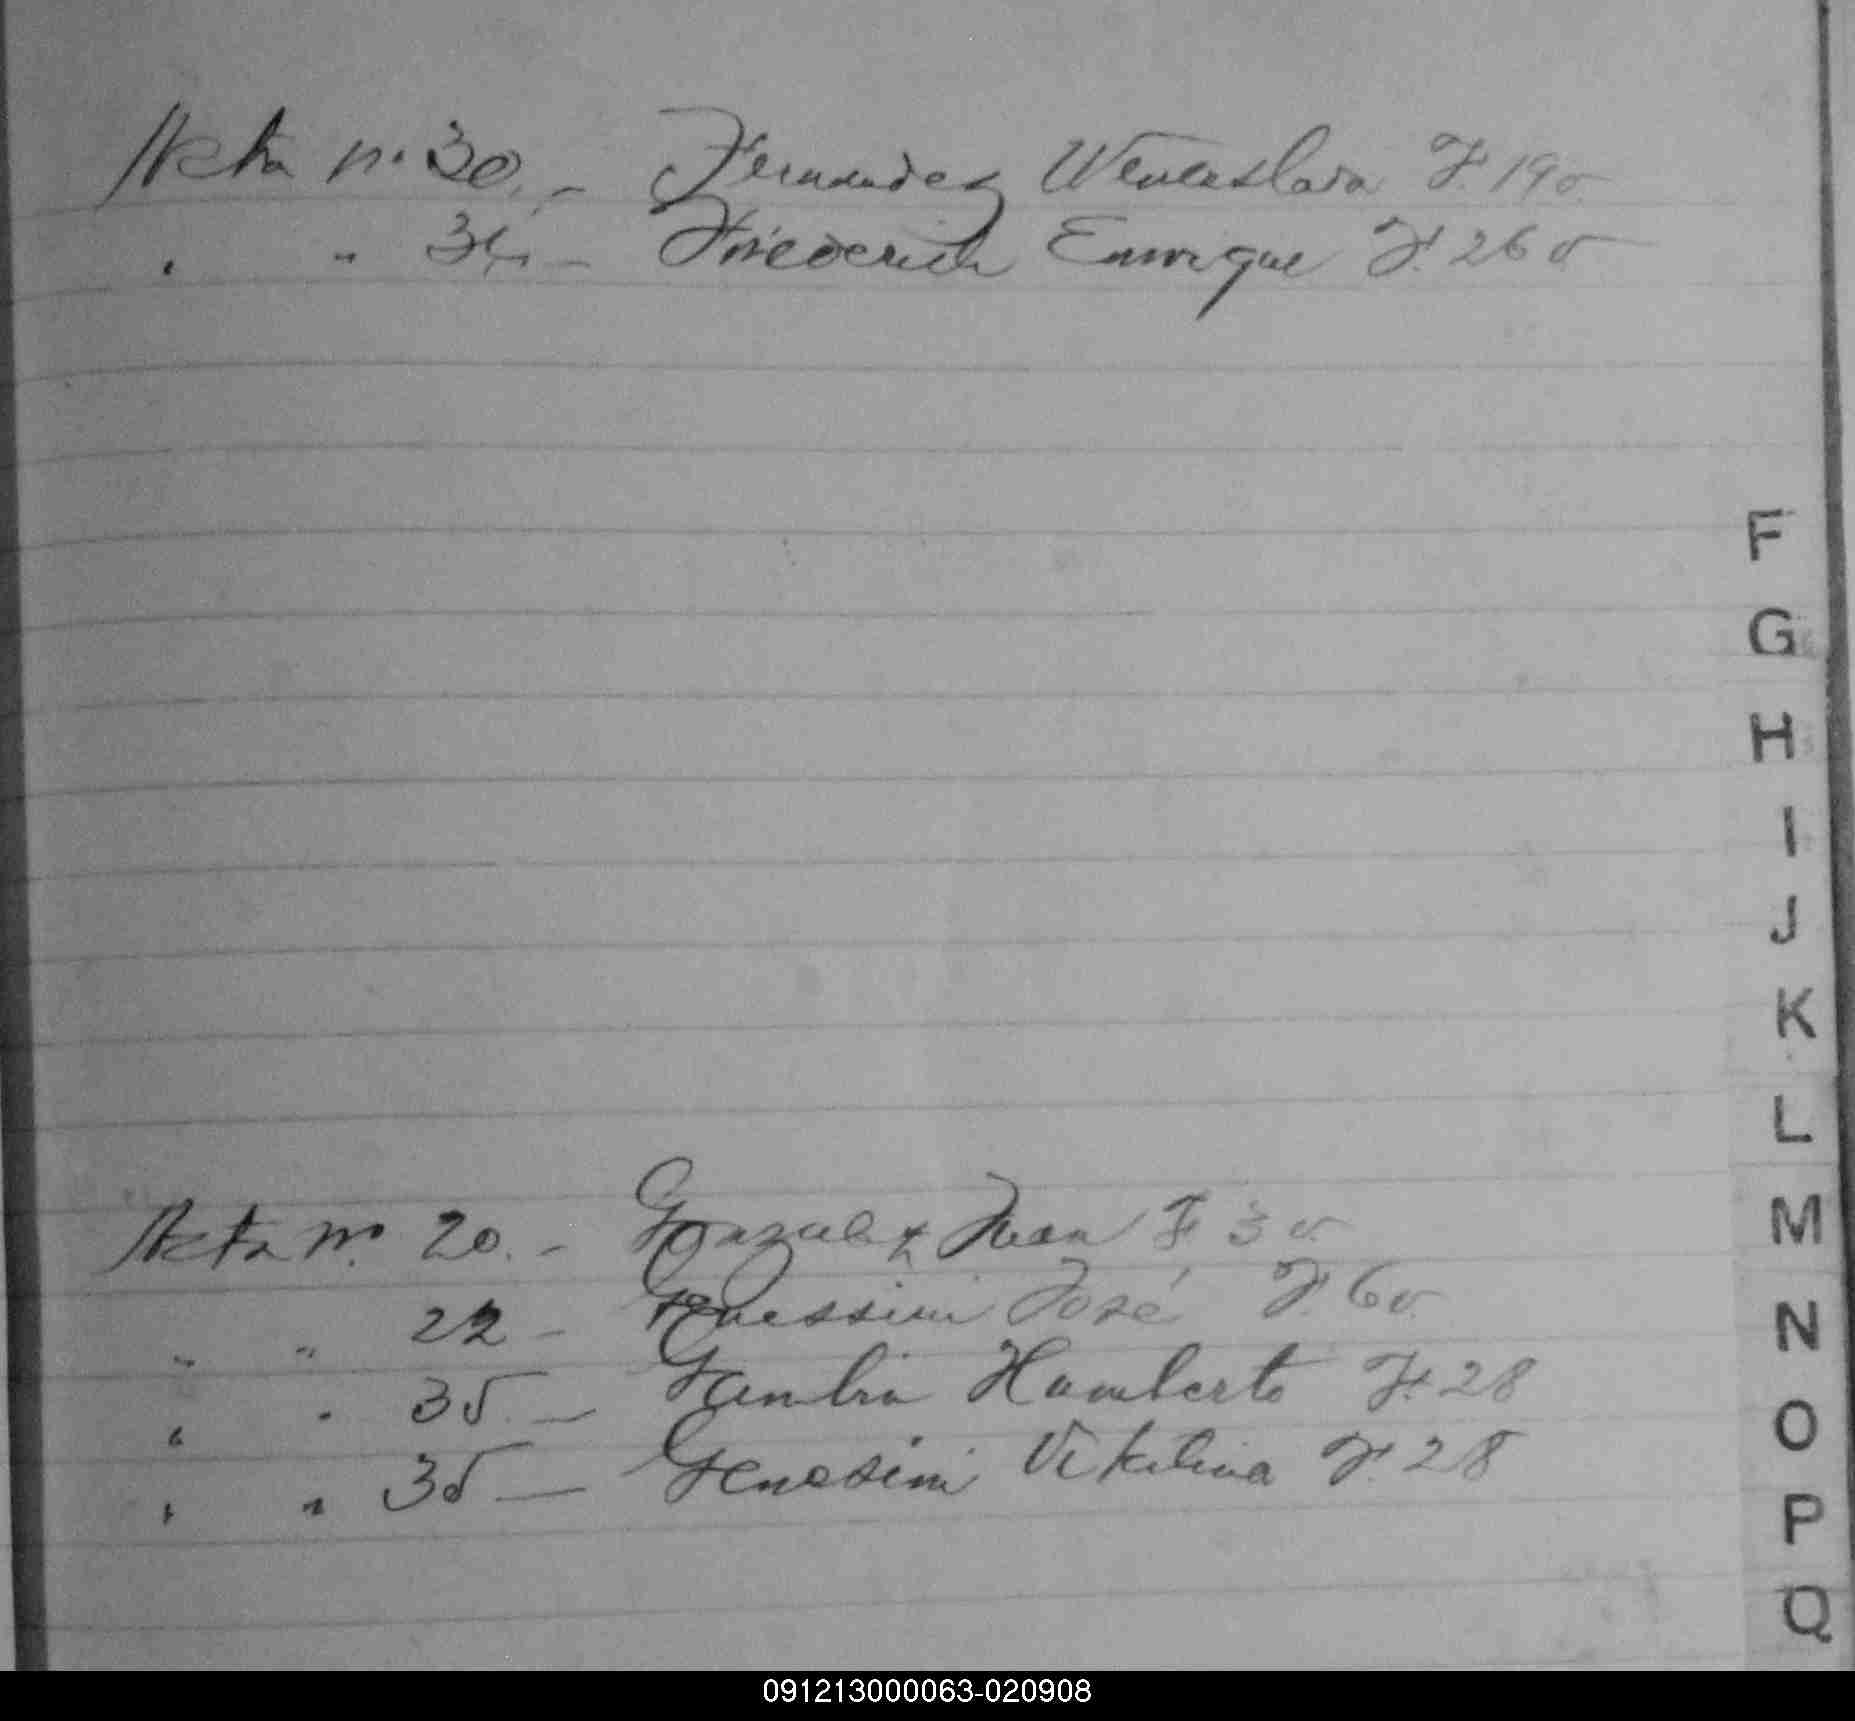 Acta nº 30. - Fernandez Wenceslava F. 19 v.
" " 34 - Friederich Enrique F. 26 v
F
G
H
I
J
K
L
Acta nº 20. - Gonzalez Juan F 3 v.
M
" " 22 - Genessini José F. 6 v.
N
" " 35. - Gambra Humberto F. 28
O
" " 35 - Genesini F. 28
P
Q
091213000063-020908